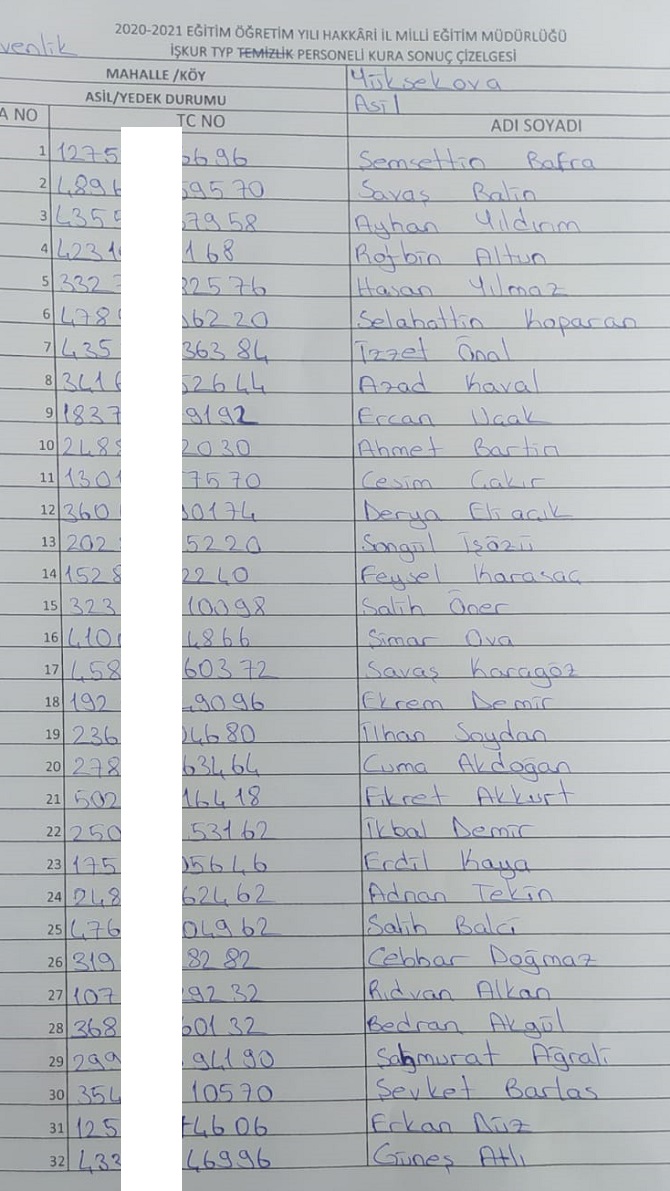 2020-2021 EĞİTİM ÖĞRETİM YILI HAKKÂRİ İL MİLLİ EĞİTİM MÜDÜRLÜĞÜ
venlik İŞKUR TYP TEMİZLİK PERSONELİ KURA SONUÇ ÇİZELGESİ
MAHALLE /KÖY Yüksekova
ASİL/YEDEK DURUMU Asil
A NO TC NO ADI SOYADI
1 1275 6696 Semsettin Bafra
2 4896 59570 Savaş Balin
3 4359 57958 Ayhan Yıldırım
4 4231 168 Rojbin Altun
5 332 22576 Hasan Yılmaz
6 478 66220 Selahattin Koparan
7 435 36384 İzzet Önal
8 3416 52644 Azad Kaval
9 1837 9192 Ercan Uçak
10 2488 2030 Ahmet Bartin
11 1301 77570 Cesim Çakır
12 360 00174 Derya Eli açık
13 202 5220 Songül İşözü
14 1528 2240 Feysel Karasaç
15 323 10098 Salih Öner
16 410 4866 Simar Ova
17 458 60372 Savaş Karagöz
18 192 49096 Ekrem Demir
19 236 04680 İlhan Soydan
20 278 63464 Cuma Akdoğan
21 502 16418 Fikret Akkurt
22 250 53162 İkbal Demir
23 175 05646 Erdil Kaya
24 248 62462 Adnan Tekin
25 476 04962 Salih Balci
26 319 8282 Cebbar Doğmaz
27 107 9232 Rıdvan Alkan
28 368 60132 Bedran Akgül
29 299 94190 Sağmurat Ağrali
30 354 10570 Şevket Barlas
31 125 74606 Erkan Düz
32 433 46996 Güneş Atlı